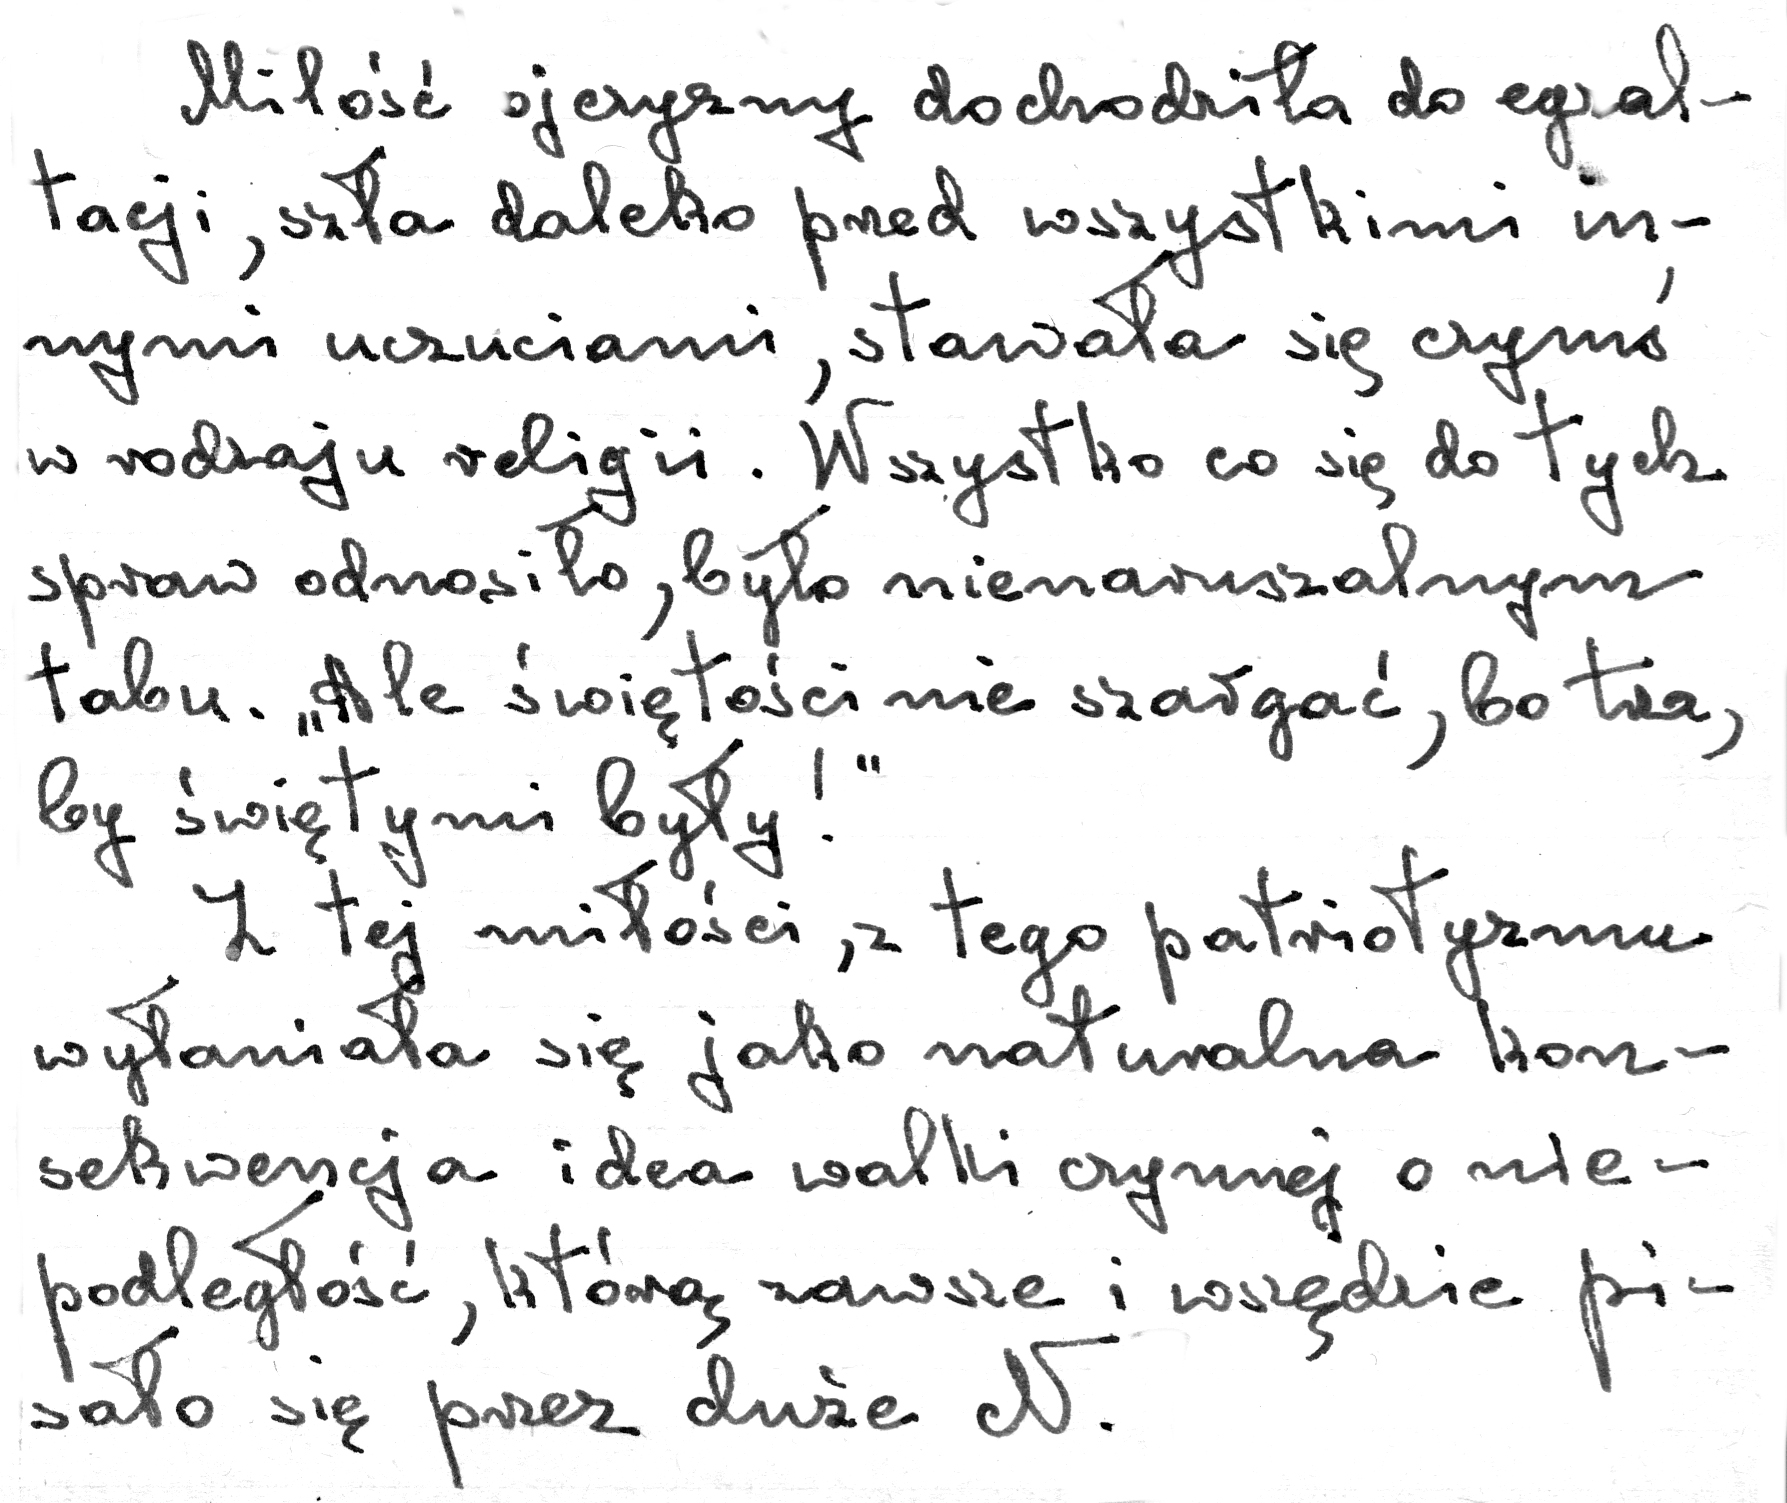 Miłość ojczyzny dochodziła do egzal-
tacji, szła daleko przed wszystkimi in-
nymi uczuciami, stawała się czymś
w rodzaju religii. Wszystko co się do tych
spraw odnosiło, było nienaruszalnym
tabu. „Ale świętości nie szargać, bo trza,
by świętymi były!"
Z tej miłości, z tego patriotyzmu
wyłaniała się jako naturalna kon-
sekwencja idea walki czynnej o nie-
podległość, którą zawsze i wszędzie pi-
sało się przez duże N.